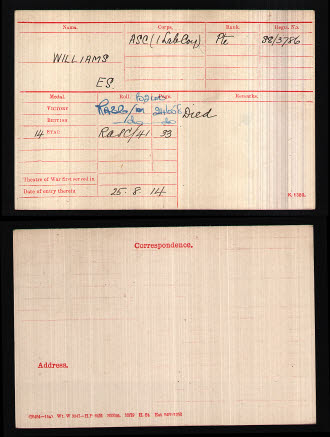 Name. Corps. Rank. Regtl. No.
WILLIAMS ASC (1 Lab Coy) Pte
ES
Medal. Roll. Page. Remarks.
VICTORY Died
BRITISH
14 STAR RASC/41 33
Theatre of War first served in
Date of entry therein 25-8-14
K. 1380.
Correspondence.
Address.